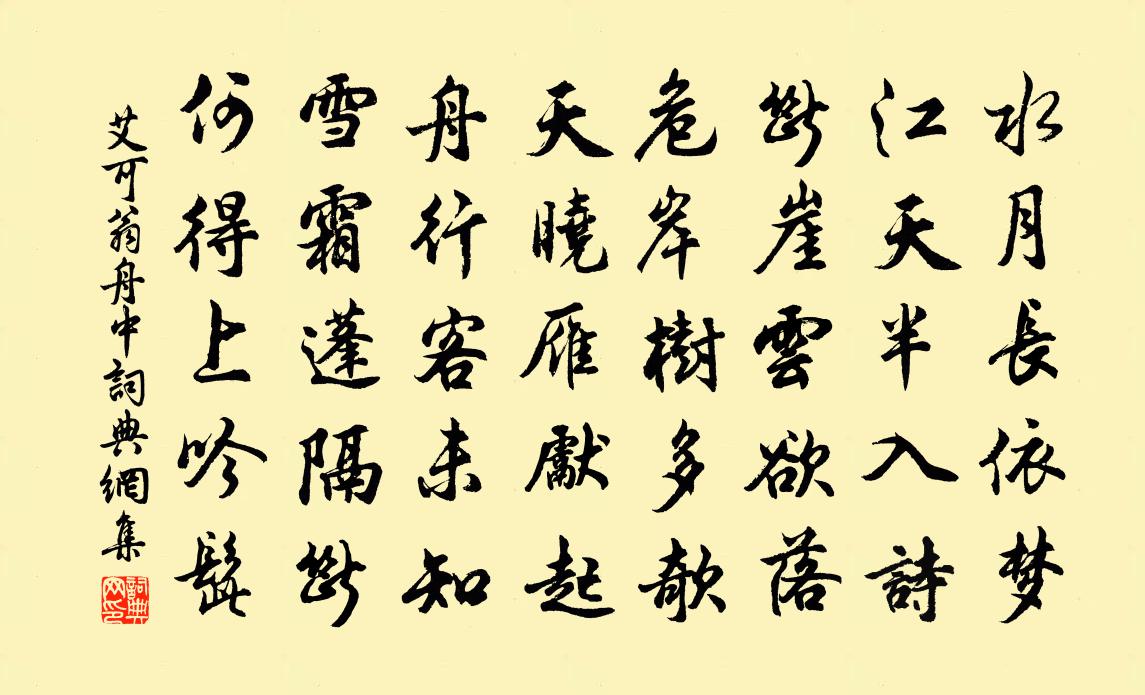 水月長依梦
江天半入詩
斷崖雲欲落
危岸樹多欹
天曉雁獻起
舟行客未知
雪霜蓬隔斷
何得上吟髭
艾可翁舟中詞典網集
詞典网印